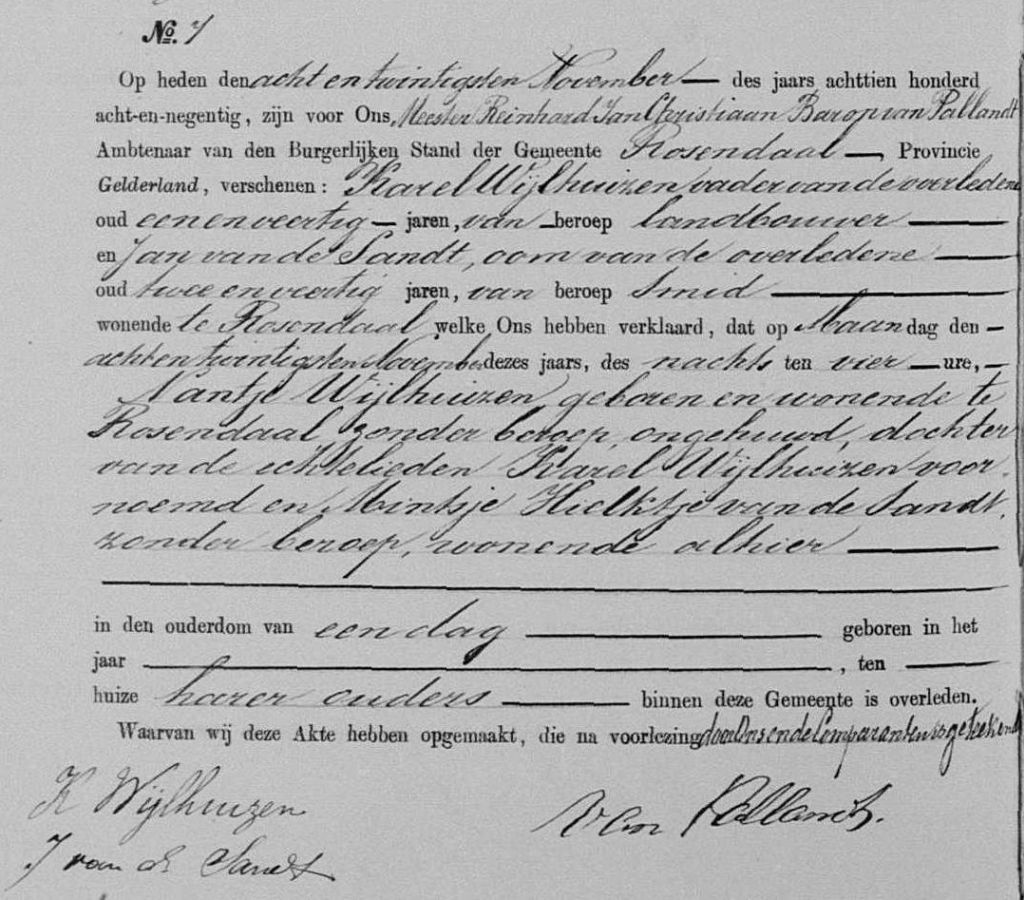 No. 7
Op heden den acht en twintigsten November — des jaars achttien honderd
acht-en-negentig, zijn voor Ons, Meester Reinhard Jan Christiaan Baron van Pallandt
Ambtenaar van den Burgerlijken Stand der Gemeente Rosendaal —, Provincie
Gelderland, verschenen: Karel Wijlhuizen vader van de overledene
oud een en veertig — jaren, van beroep landbouwer —
en Jan van de Sandt, oom van de overledene —
oud twee en veertig jaren, van beroep Smid —
wonende te Rosendaal welke Ons hebben verklaard, dat op Maandag den —
acht en twintigsten November dezes jaars, des nachts ten vier — ure, —
Wijlhuizen, geboren en wonende te
Rosendaal, zonder beroep, ongehuwd, dochter
van de echtelieden Karel Wijlhuizen voor-
noemd en Mintsje Hielktje van de Sandt,
zonder beroep, wonende alhier —
in den ouderdom van een dag — geboren in het
jaar —, ten —
huize harer ouders — binnen deze Gemeente is overleden.
Waarvan wij deze Akte hebben opgemaakt, die na voorlezing door Ons en de Comparanten is geteekend
K Wijlhuizen
van Pallandt.
J van de Sandt